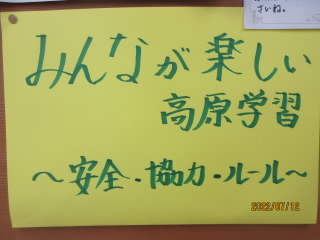 さいね。
みんなが楽しい
高原学習
～安全・協力・ルール～
2022/07/12